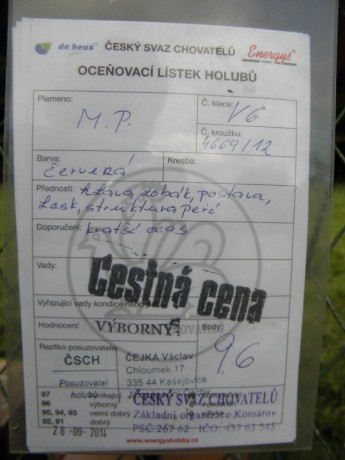 de heus ČESKÝ SVAZ CHOVATELŮ Energys
OCEŇOVACÍ LÍSTEK HOLUBŮ
Plemeno: M.P.
Č. klece: V6
Č. kroužku: 4669/12
Barva: červená
Kresba:
Přednosti: hlava, zobák, postava,
Lesk, struktura peří
Doporučení: kratší ocas
Vady:
Čestná cena
Vyřazující vady kondice nebo
Hodnocení: VÝBORNÝ
Body: 96
Razítko posuzovatele:
ČSCH
Posuzovatel
holubů
ČEJKA Václav
Chloumek 17
335 44 Kasejovice
97 vynikající
96 výborný
95, 94, 93 velmi dobrý
92, 91 dobrý
ČESKÝ SVAZ CHOVATELŮ
Základní organizace Komárov
PSČ 267 62 IČO 437 63 545
26 -09- 2014
www.energyshobby.cz